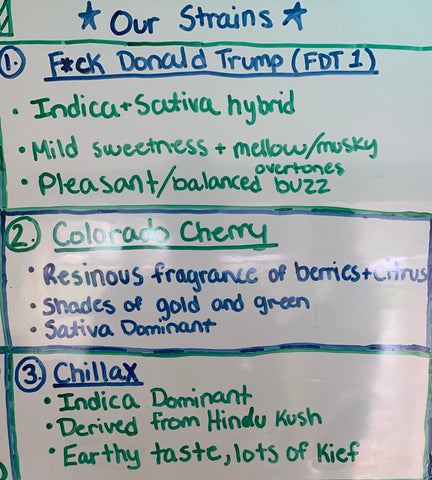 ★ Our Strains ★
1. F*ck Donald Trump (FDT 1)
• Indica + Sativa hybrid
• Mild sweetness + mellow/musky
overtones
• Pleasant/balanced buzz
2. Colorado Cherry
• Resinous fragrance of berries + Citrus
• Shades of gold and green
• Sativa Dominant
3. Chillax
• Indica Dominant
• Derived from Hindu Kush
• Earthy taste, lots of Kief